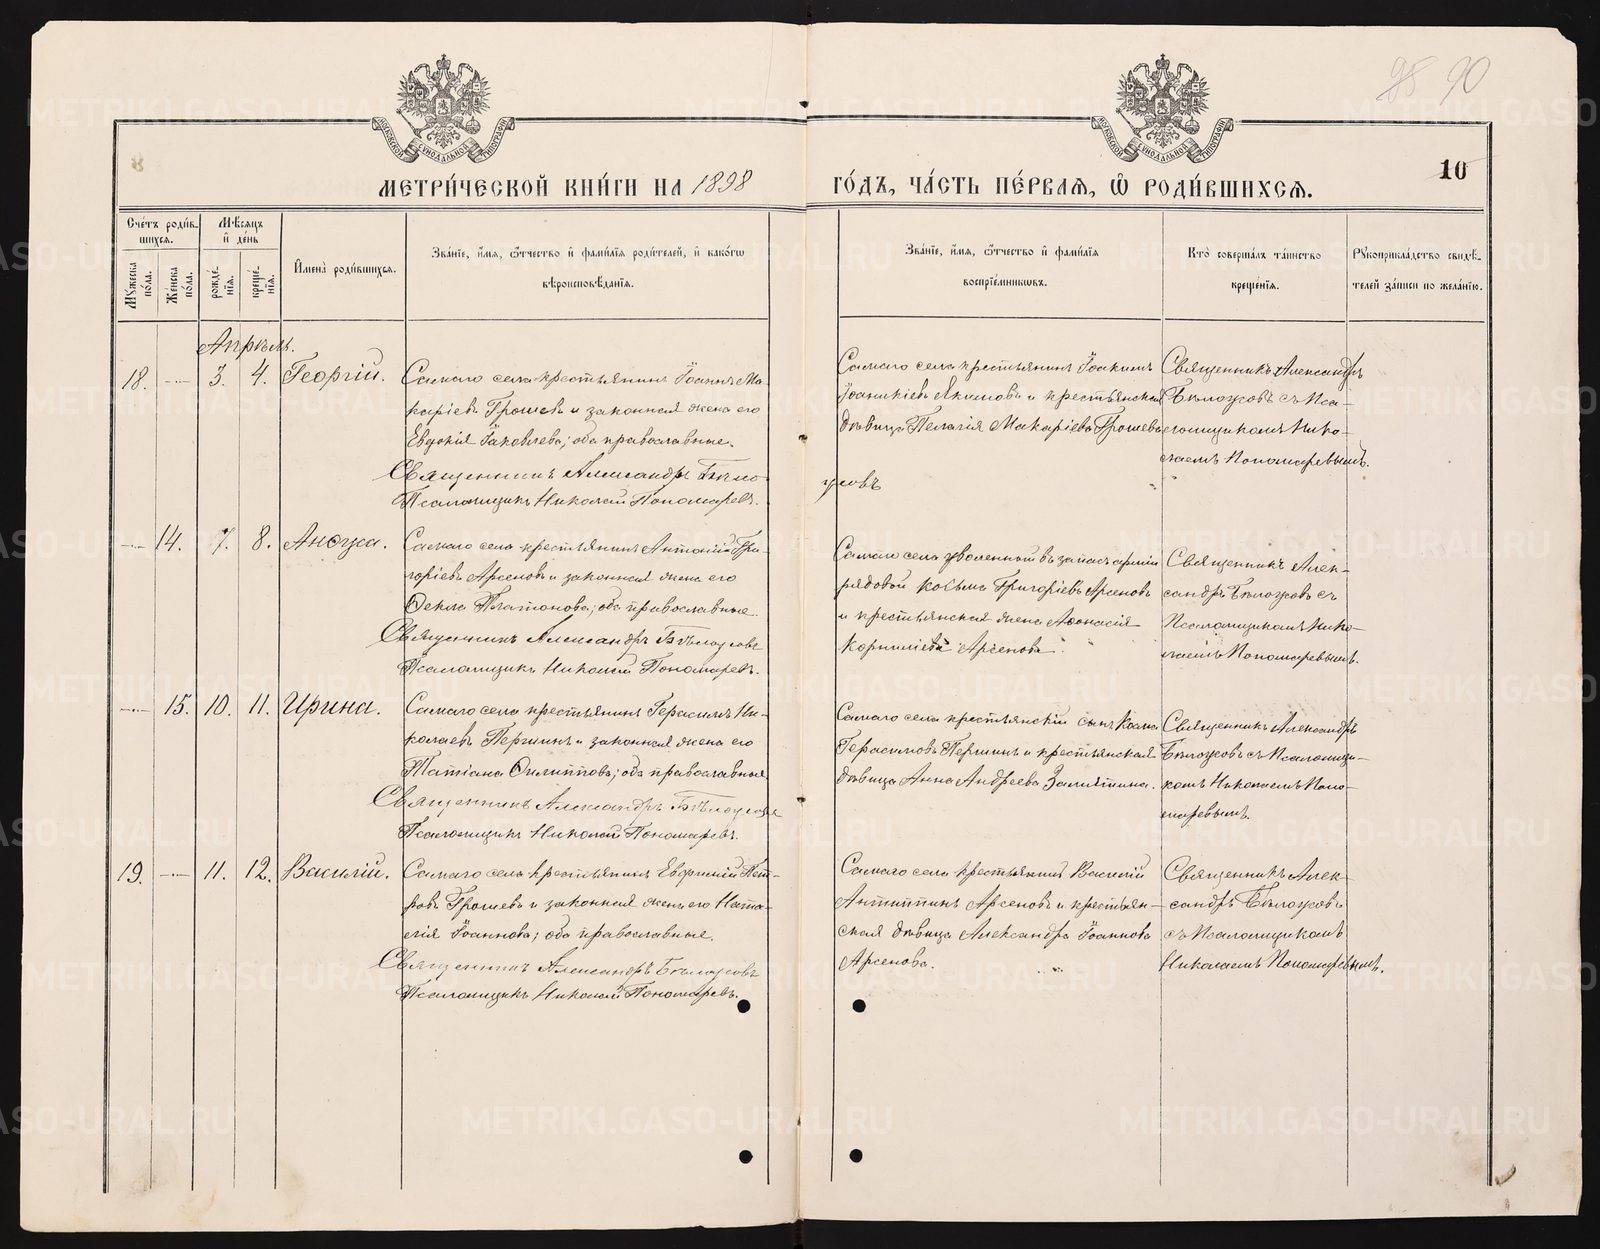 85 90
МОСКОВСКОЙ СѴНОДАЛЬНОЙ ТИПОГРАФІИ
МОСКОВСКОЙ СѴНОДАЛЬНОЙ ТИПОГРАФІИ
10
МЕТРИ́ЧЕСКОЙ КНИ́ГИ НА 1898
ГО́ДЪ, ЧА́СТЬ ПЕ́РВАЯ, Ѡ҆ РОДИ́ВШИХСѦ.
Сче́тъ роди́в-
шихсѧ.
Мꙋ́жеска по́ла.
Же́нска по́ла.
Мѣ́сѧцъ
и҆ де́нь
рожде́-
нїѧ.
креще́-
нїѧ.
И҆мена̀ роди́вшихсѧ.
Зва́нїе, и҆́мѧ, ѻ҆́тчество и҆ фами́лїѧ роди́телей, и҆ како́гѡ
вѣроисповѣ́данїѧ.
Зва́нїе, и҆́мѧ, ѻ҆́тчество и҆ фами́лїѧ
воспрїе́мниковъ.
Кто̀ соверша́лъ та́инство
креще́нїѧ.
Рꙋкоприкла́дство свидѣ́-
телей за́писи по жела́нїю.
Апрѣль.
18. — 3. 4. Георгій.
Самаго села крестьянинъ Іоаннъ Ма-
каріевъ Грошевъ и законная жена его
Евдокія Іаковлева; оба православные.
Священникъ Александръ Бѣло-
усовъ
Псаломщикъ Николай Пономаревъ.
Самаго села крестьянинъ Іоакимъ
Іоаникіевъ Якимовъ и крестьянская
дѣвица Пелагія Макаріева Грошева
Священникъ Александръ
Бѣлоусовъ съ Пса-
ломщикомъ Нико-
лаемъ Пономаревымъ.
— 14. 7. 8. Анѳуса.
Самаго села крестьянинъ Антоній Гри-
горіевъ Арсеновъ и законная жена его
Ѳекла Платонова; оба православные.
Священникъ Александръ Бѣлоусовъ
Псаломщикъ Николай Пономаревъ.
Самаго села уволенный въ запасъ арміи
рядовой Косьма Григоріевъ Арсеновъ
и крестьянская жена Аѳанасія
Корниліева Арсенова.
Священникъ Алек-
сандръ Бѣлоусовъ съ
Псаломщикомъ Нико-
лаемъ Пономаревымъ.
— 15. 10. 11. Ирина.
Самаго села крестьянинъ Герасимъ Ни-
колаевъ Першинъ и законная жена его
Татіана Филиппова; оба православные
Священникъ Александръ Бѣлоусовъ
Псаломщикъ Николай Пономаревъ.
Самаго села крестьянскій сынъ Косма
Герасимовъ Першинъ и крестьянская
дѣвица Анна Андреева Замятина.
Священникъ Александръ
Бѣлоусовъ съ Псаломщи-
комъ Николаемъ Поно-
маревымъ.
19. — 11. 12. Василій.
Самаго села крестьянинъ Евфимій Пет-
ровъ Грошевъ и законная жена его Ната-
лія Іоаннова; оба православные.
Священникъ Александръ Бѣлоусовъ
Псаломщикъ Николай Пономаревъ.
Самаго села крестьянинъ Василій
Антипинъ Арсеновъ и крестьян-
ская дѣвица Александра Іоаннова
Арсенова.
Священникъ Алек-
сандръ Бѣлоусовъ
съ Псаломщикомъ
Николаемъ Пономаревымъ.
METRIKI.GASO-URAL.RU